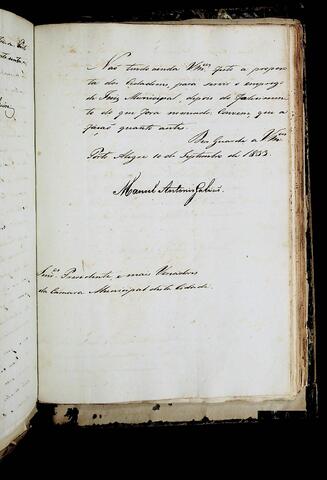 Não tendo ainda Vm.ces feito a propos-
ta dos Cidadãos, para servir o emprego
de Juiz Municipal, depois do falecimen-
to do que fora nomeado, convem que a
fação quanto antes.
Deos Guarde a Vm.ces
Porto Alegre 10 de Septembro de 1833.
Manoel Antonio Galvão.
Snr.es Presidente e mais Vereadores
da Camara Municipal desta Cidade.